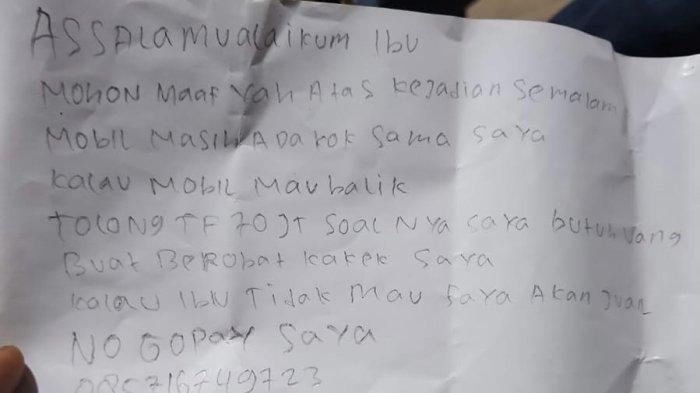 ASSALAMUALAIKUM IBU
MOHON MAAF YAH ATAS KEJADIAN SEMALAM
MOBIL MASIH ADA KOK SAMA SAYA
KALAU MOBIL MAU BALIK
TOLONG TF 70 JT SOALNYA SAYA BUTUH UANG
BUAT BEROBAT KAKEK SAYA
KALAU IBU TIDAK MAU SAYA AKAN JUAL
NO GOPAY SAYA
085716749723